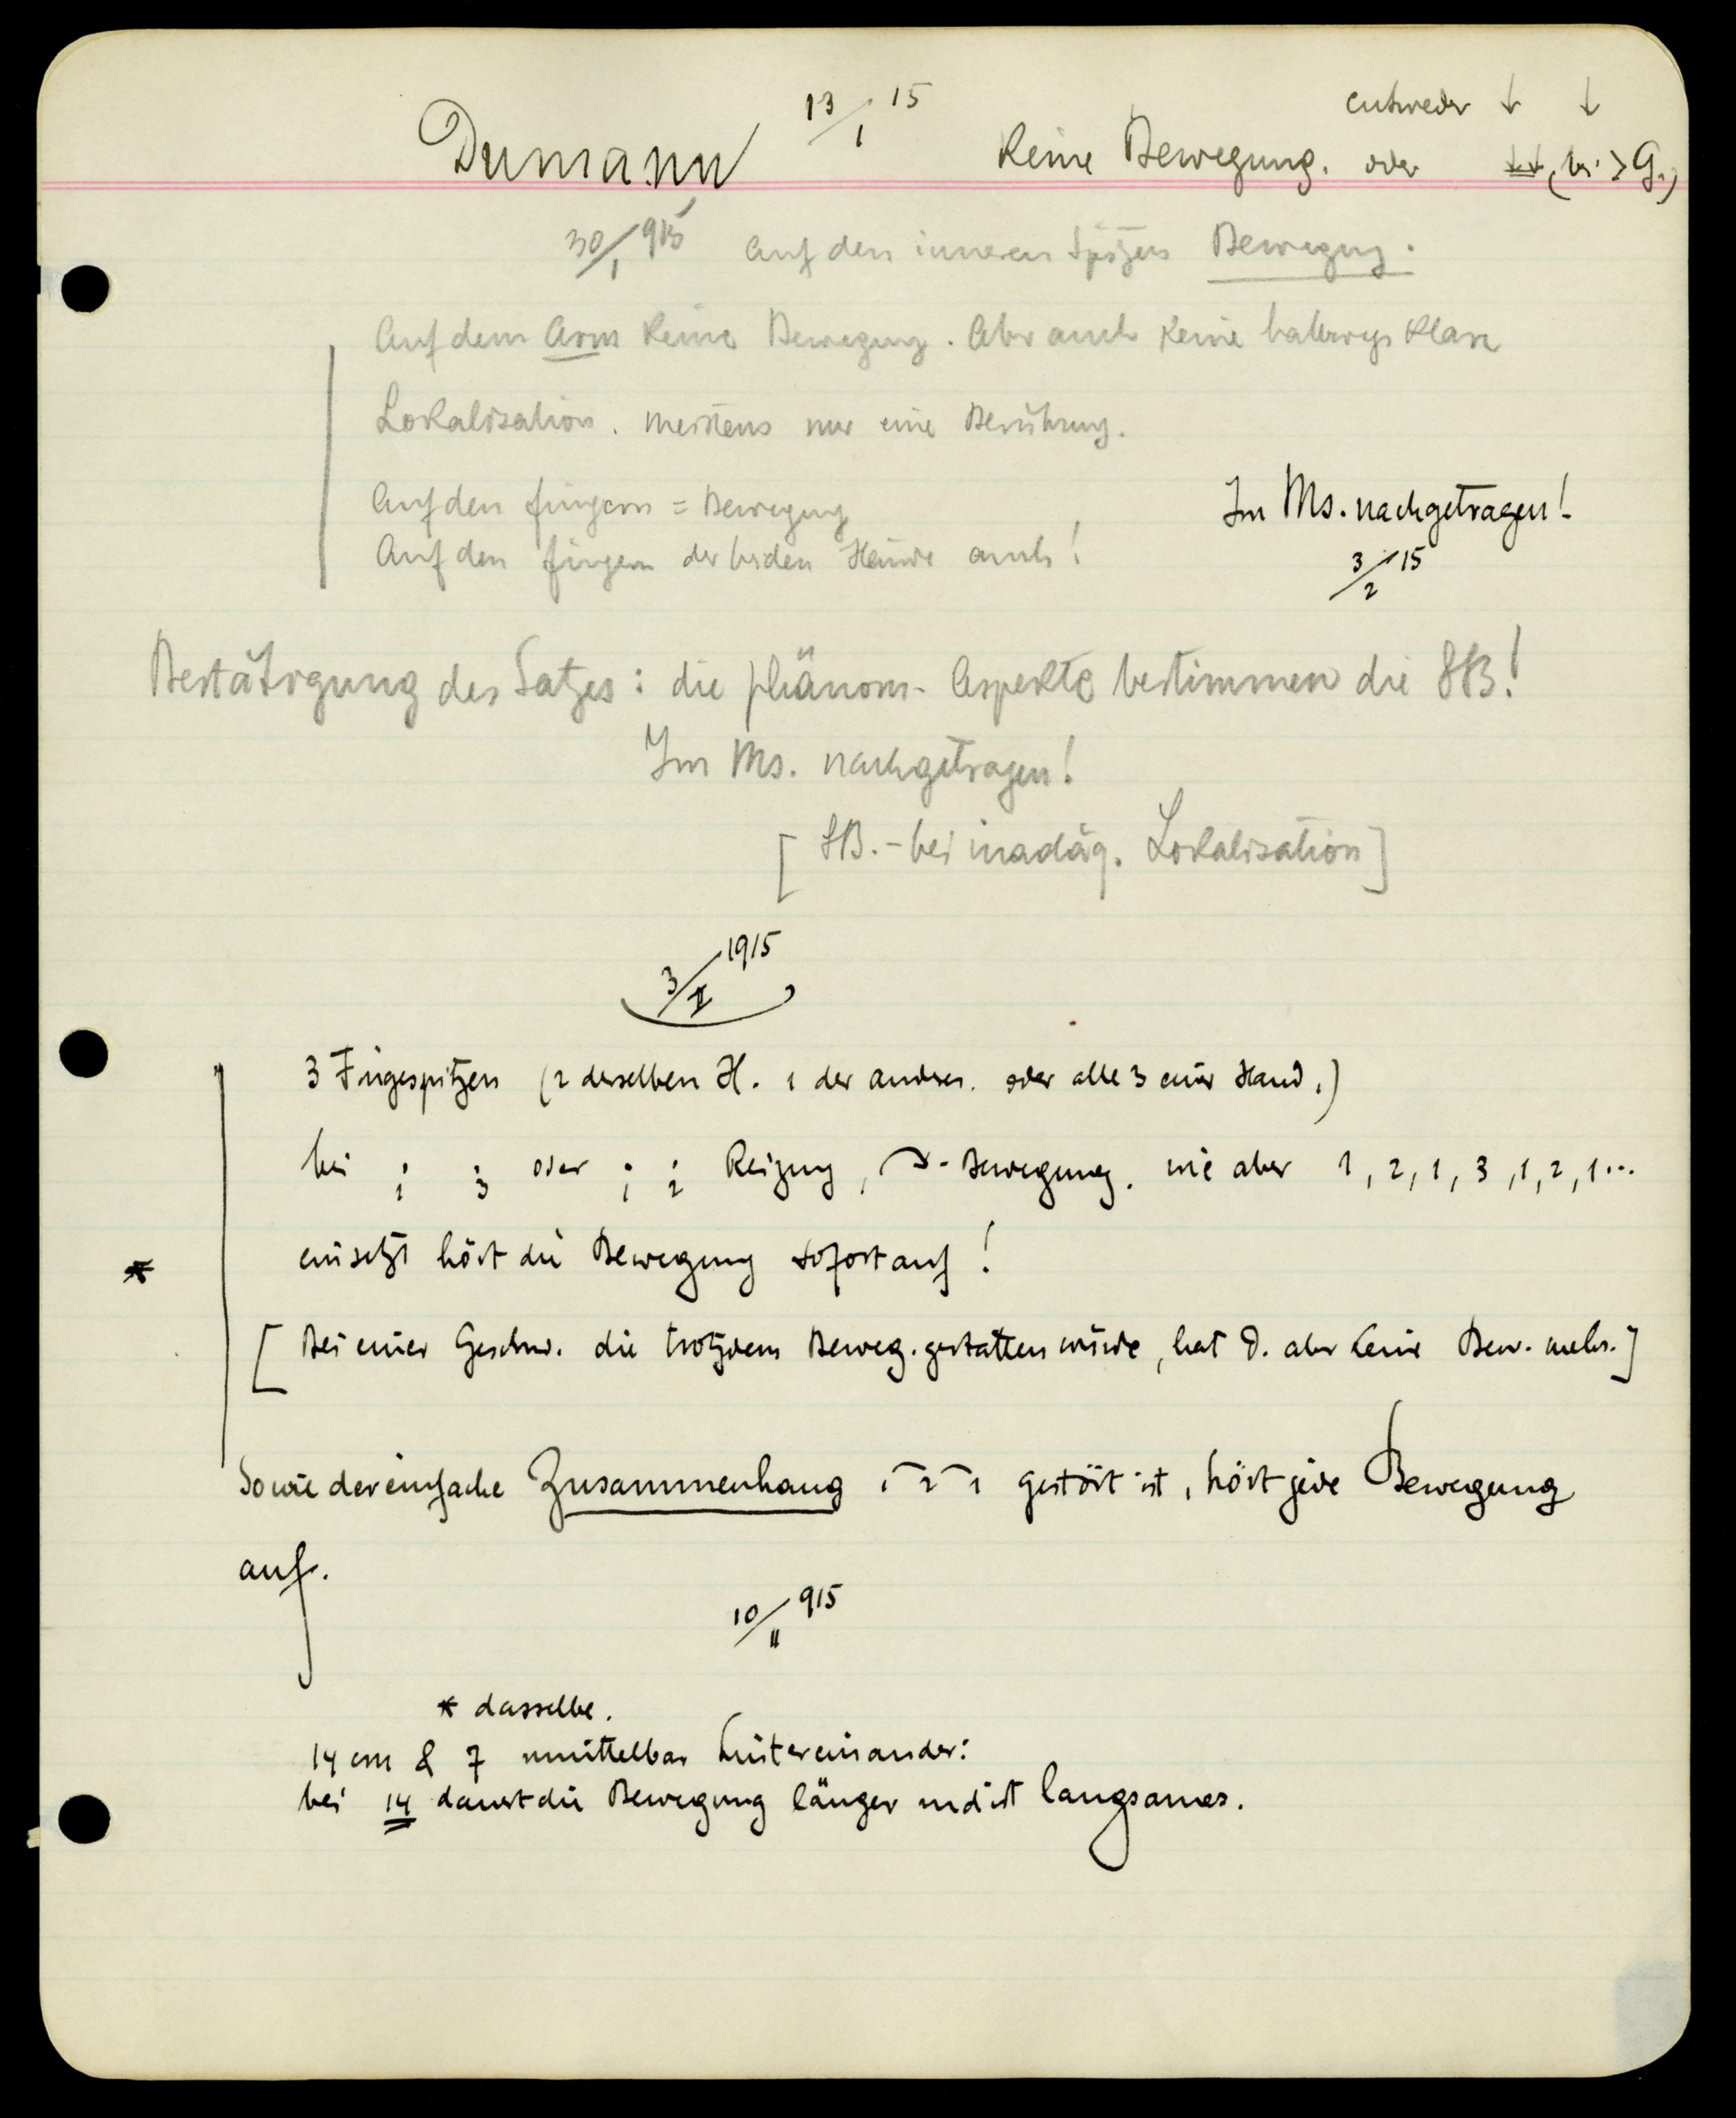 Dumann 13/1 15 Keine Bewegung. entweder ↓ ↓
oder ↓↓ (bei > G.)
30/1 915 Auf den inneren Spitzen Bewegung.
Auf dem Arm keine Bewegung. Aber auch keine halbwegs klare
Lokalisation. Meistens nur eine Berührung.
Auf den Fingern = Bewegung
Auf den Fingern der beiden Hände auch!
Im Ms. nachgetragen!
3/2 15
Bestätigung des Satzes: die phänom. Aspekte bestimmen die SB!
Im Ms. nachgetragen!
[SB. - bei inadäq. Lokalisation]
3/II 1915
3 Fingespitzen (2 derselben H. 1 der anderen. oder alle 3 einer Hand.)
bei ; 1 ; 3 oder ; 1 ; 2 Reizung, ⤵-Bewegung. wie aber 1, 2, 1, 3, 1, 2, 1...
* einsetzt hört die Bewegung sofort auf!
[Bei einer Geschw. die trotzdem Beweg. gestatten würde, hat D. aber keine Bew. mehr.]
Sowie der einfache Zusammenhang 1⁀2⁀1 gestört ist, hört jede Bewegung
auf.
10/II 915
* dasselbe.
14 cm & 7 unmittelbar hintereinander:
bei 14 dauert die Bewegung länger und ist langsamer.